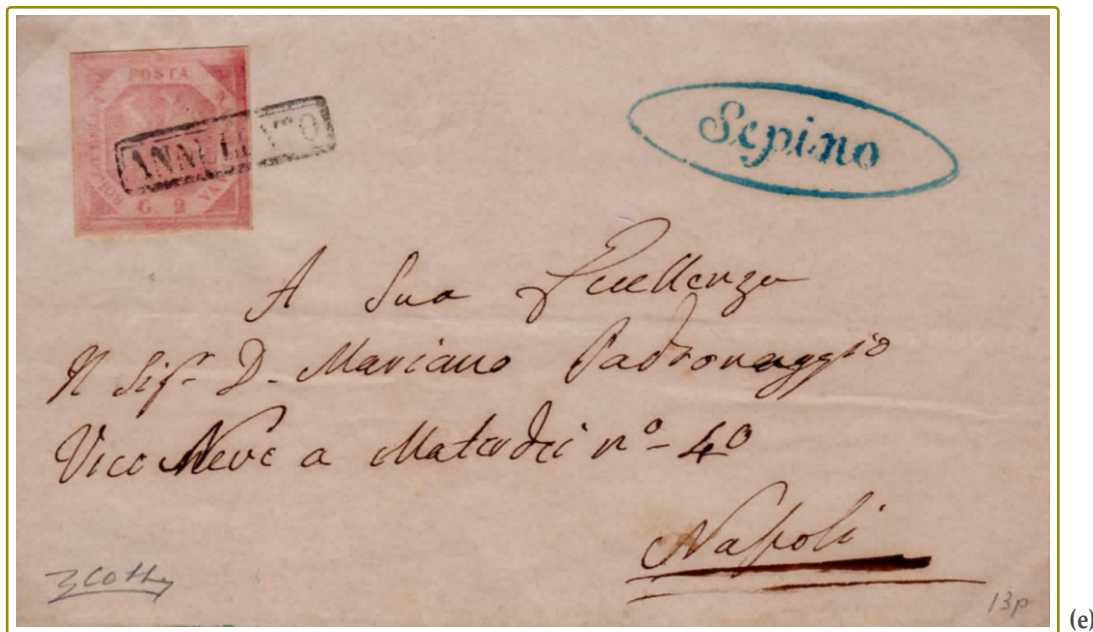 POSTA
G. 2
ANNULLATO
Sepino
A Sua Eccellenza
Il Sigr D. Mariano Padronaggio
Vico Neve a Materdei nº 40
Napoli
13p
(e)